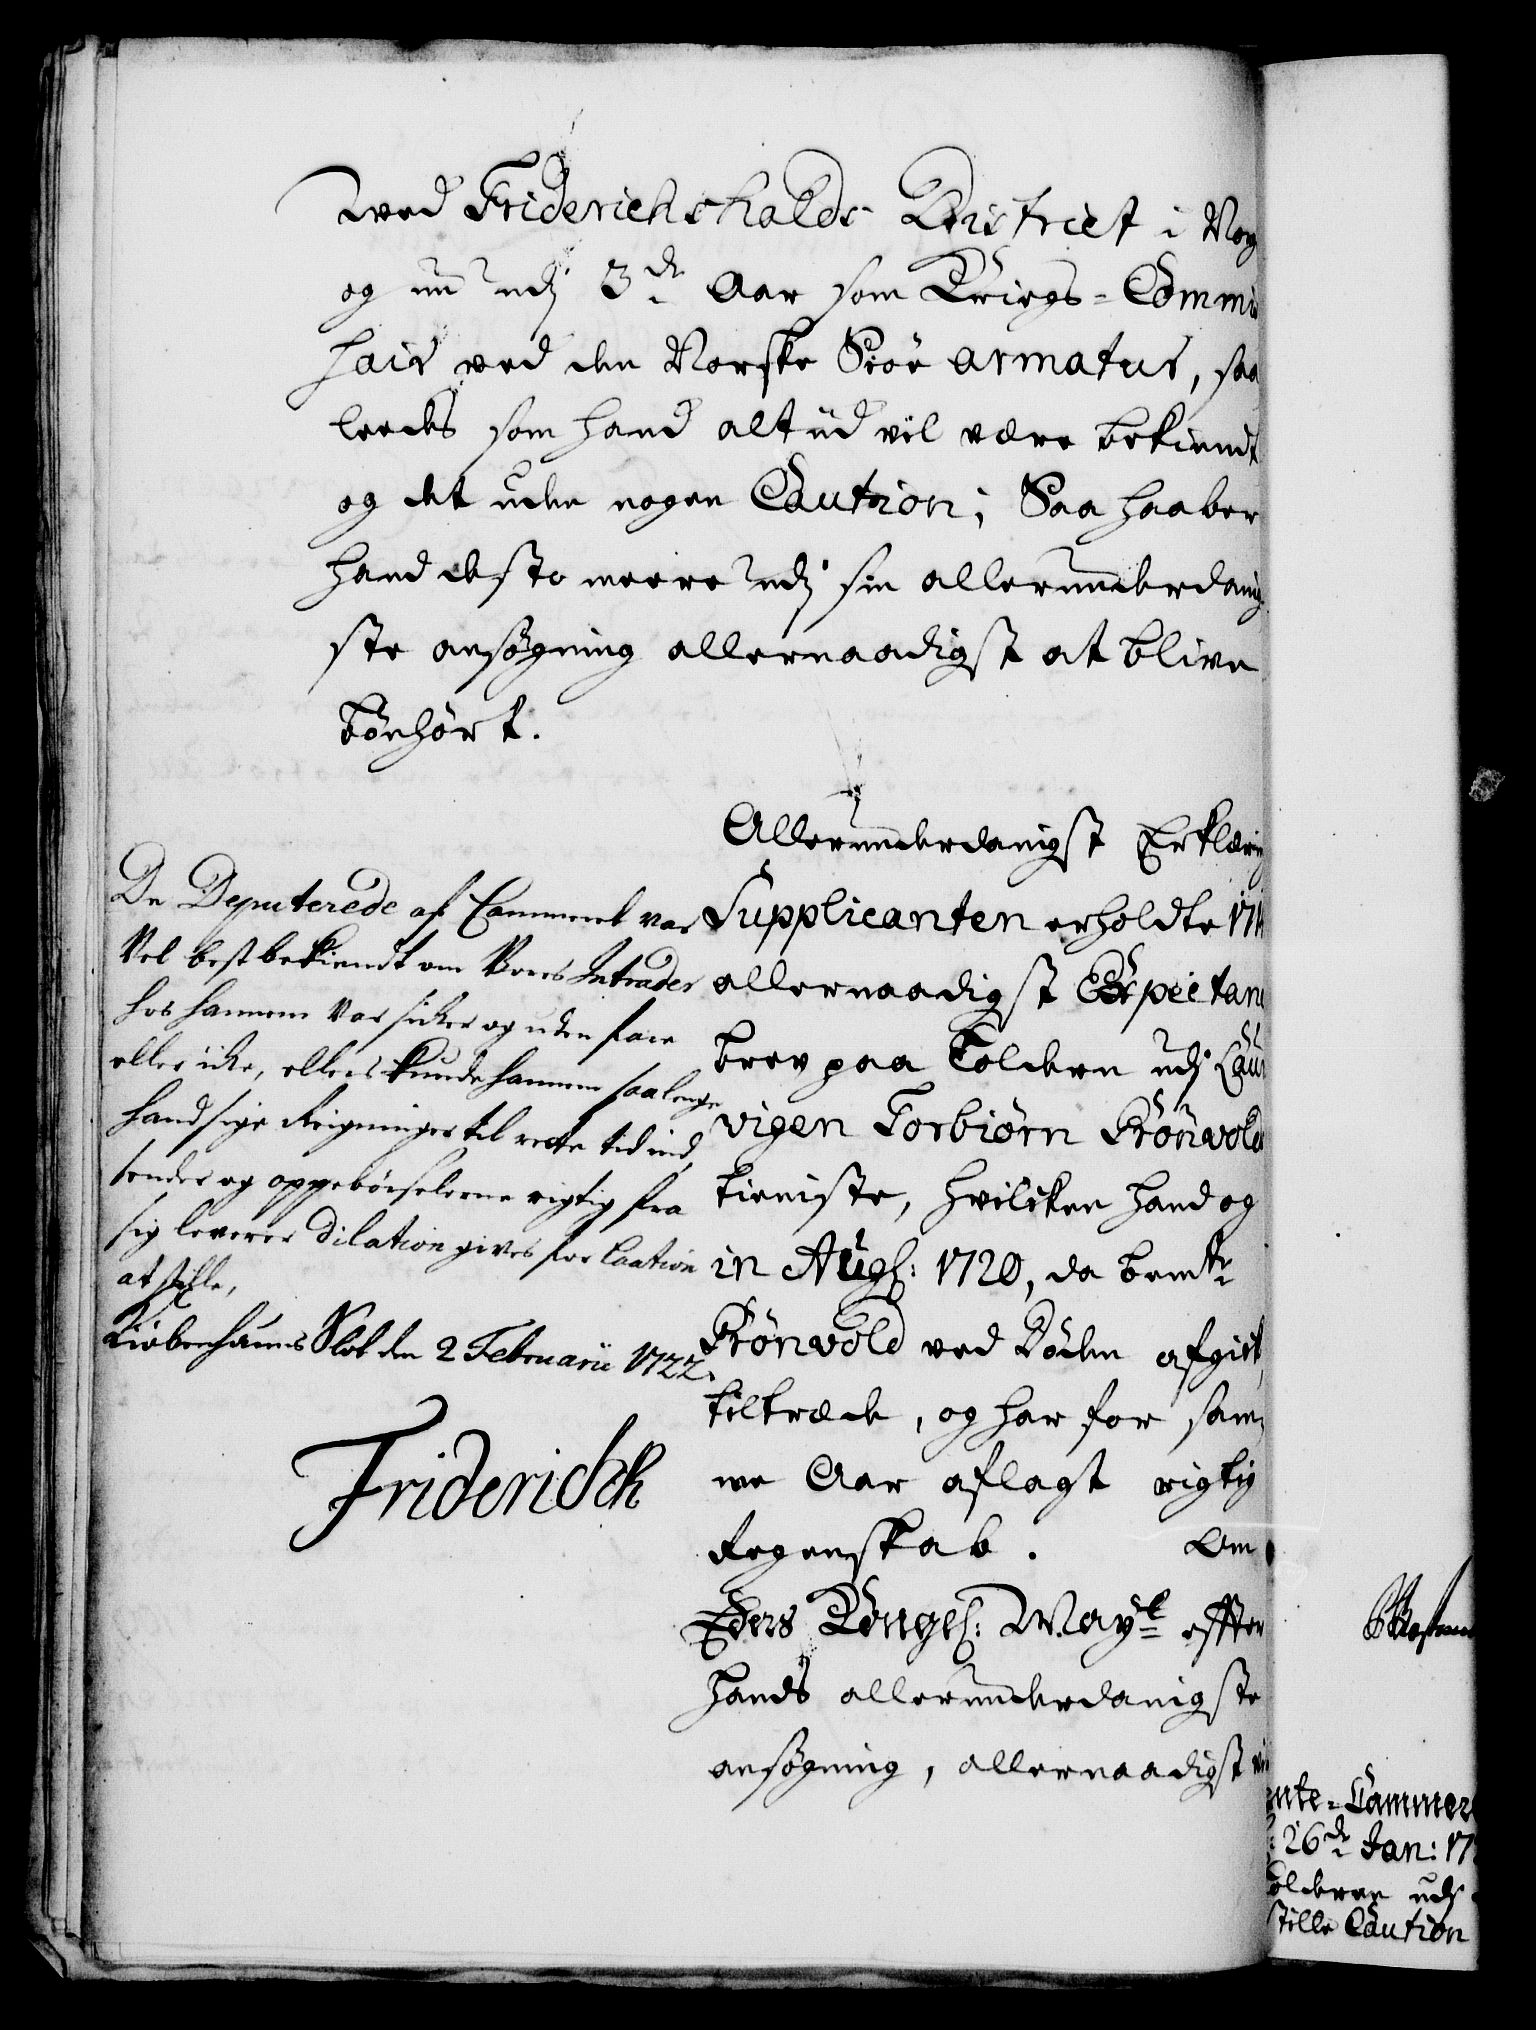 ved Friderichshalds District i Nor
og nu udj 3de Aar som Kriegs-Commi
hair ved den Norske Siøe armatur, saa
leedes som hand altiid vil være bekiendt
og det uden nogen Caution; Saa haaber
hand desto meere udj sin allerunderdanig
ste ansøgning allernaadigst at blive
bønhørt.
Allerunderdanigst Erklæring
Supplicanten erholdte 171
allernaadigst Expectance
brev paa Tolderen udj Laur
vigen Torbiørn Grønvold
tieniste, hvilcken hand og
in Augs: 1720, da bemte
Grønvold ved Døden afgick,
tiltræde, og har for sam
me Aar aflagt rigtig
Regenskab. Om
Eders Kongel: Mayt effter
hands allerunderdanigste
ansøgning, allernaadigst
De Deputerede af Cammeret var
Vel best bekiendt om Vores Intrader
hos hannem Var sicker og uden fare
eller icke, ellers kunde hannem saalenge
hand sige Reigninger til rette tid ind
sender og oppebørselerne rigtig fra
sig leverer Dilation gives for Caution
at stille,
Kiøbenhauns Slot den 2 Februarii 1722.
Friderich
ente-Cammer
26de Jan: 17
olderen udj
stille Caution